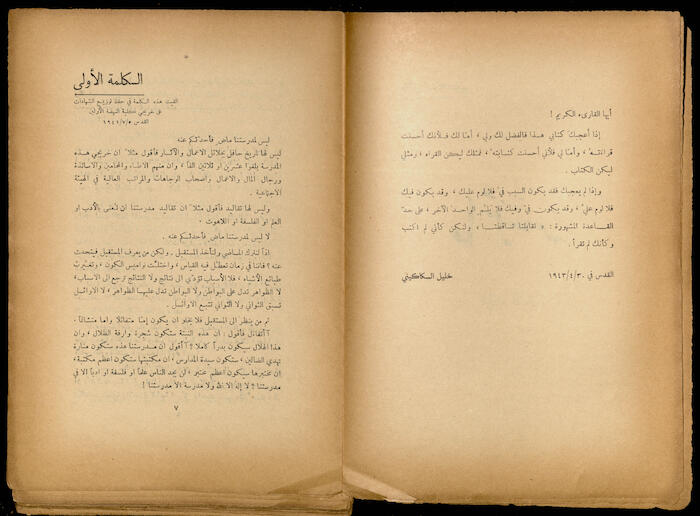 أيها القارىء الكريم !
إذا أعجبك كتابي هذا فالفضل لك ولي ، أمّا لك فلأنك أحسنت
قراءته ، وأمّا لي فلأني أحسنت كتابته ، فمثلك ليكن القراء ، ومثلي
ليكن الكتاب .
وإذا لم يعجبك فقد يكون السبب في فلا لوم عليك ، وقد يكون فيك
فلا لوم عليّ ، وقد يكون فيّ وفيك فلا يلم الواحد الآخر ، على حد
القاعدة المشهورة : « تقابلتا تساقطتا » ، ولنكن كأني لم اكتب
وكأنك لم تقرأ .
القدس في ١٩٤٣/٤/٣٠
خليل السكاكيني
الكلمة الأولى
القيت هذه الكلمة في حفلة توزيع الشهادات
على خريجي كلية النهضة الأولين
القدس
ليس لمدرستنا ماض فأحدثكم عنه
ليس لها تاريخ حافل بجلائل الاعمال والآثار فأقول مثلاً ان خريجي هذه
المدرسة بلغوا عشرين او ثلاثين الفاً ، وان منهم الاطباء والمحامين والاساتذة
ورجال المال والاعمال واصحاب الوجاهات والمراتب العالية في الهيئة
الاجتماعية .
وليس لها تقاليد فأقول مثلاً ان تقاليد مدرستنا ان تعنى بالأدب او
العلم او الفلسفة او اللاهوت .
لا ليس لمدرستنا ماض فأحدثكم عنه
إذاً لنترك الماضي ولنأخذ المستقبل . ولكن من يعرف المستقبل فيتحدث
عنه ؟ فاننا في زمان تعطل فيه القياس ، واختلت نواميس الكون ، وتغيرت
طبائع الأشياء ، فلا الأسباب تؤدي الى نتائج ولا النتائج ترجع الى الاسباب ،
لا الظواهر تدل على البواطن ولا البواطن تدل عليها الظواهر ، لا الاوائل
تسبق الثواني ولا الثواني تتبع الاوائل .
ثم من ينظر الى المستقبل فلا يخلو ان يكون إما متفائلاً وإما متشائماً .
أأتفاءل فأقول : ان هذه النبتة ستكون شجرة وارفة الظلال ، وان
هذا الهلال سيكون بدراً كاملاً ؟ أأقول ان مدرستنا هذه ستكون منارة
تهدي الضالين ، ستكون سيدة المدارس ، ان مكتبتها ستكون اعظم مكتبة ،
إن مختبرها سيكون اعظم مختبر ، لن يجد الناس علماً او فلسفة او ادباً الا في
مدرستنا ؟ لا إله الا الله ولا مدرسة الا مدرستنا !
٧